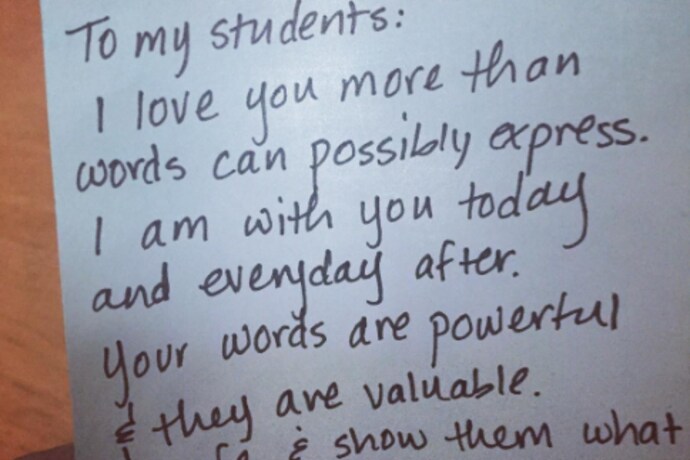 To my students:
I love you more than
words can possibly express.
I am with you today
and everyday after.
Your words are powerful
& they are valuable.
& show them what